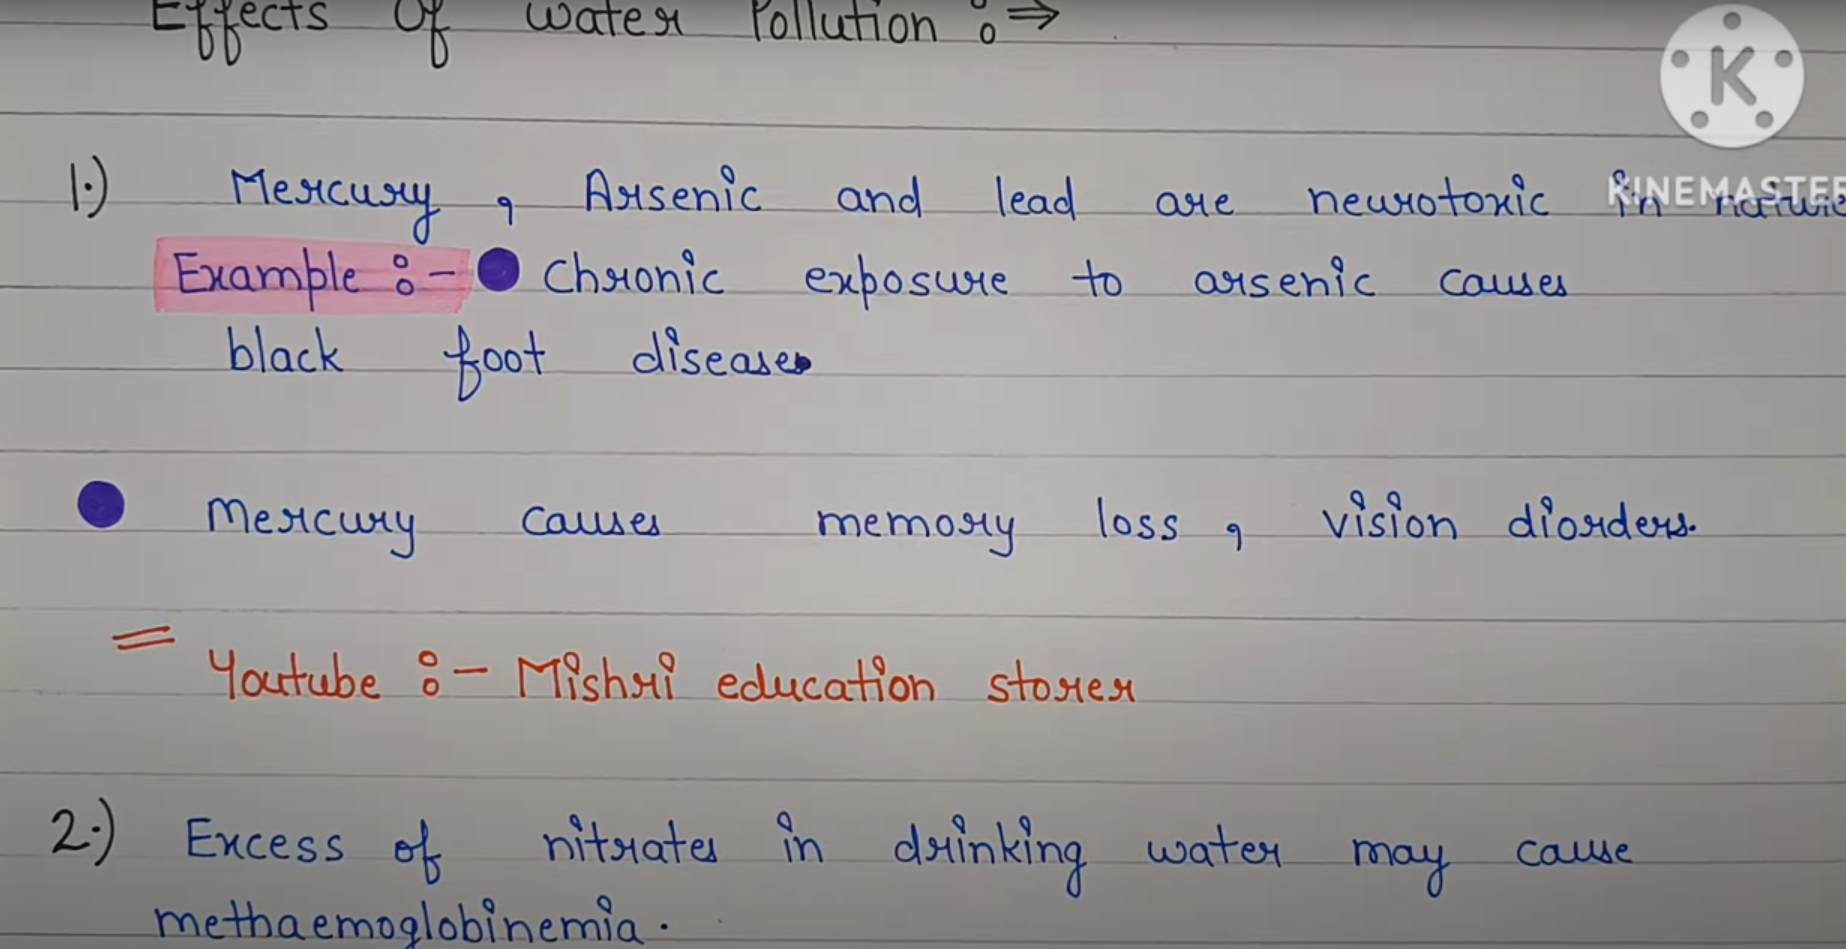 Effects of water Pollution :⇒
K
KINEMASTER
1.) Mercury , Arsenic and lead are neurotoxic in nature
Example :- ● Chronic exposure to arsenic causes
black foot disease.
● Mercury causes memory loss , vision diorders.
= Youtube :- Mishri education storer
2.) Excess of nitrates in drinking water may cause
methaemoglobinemia.